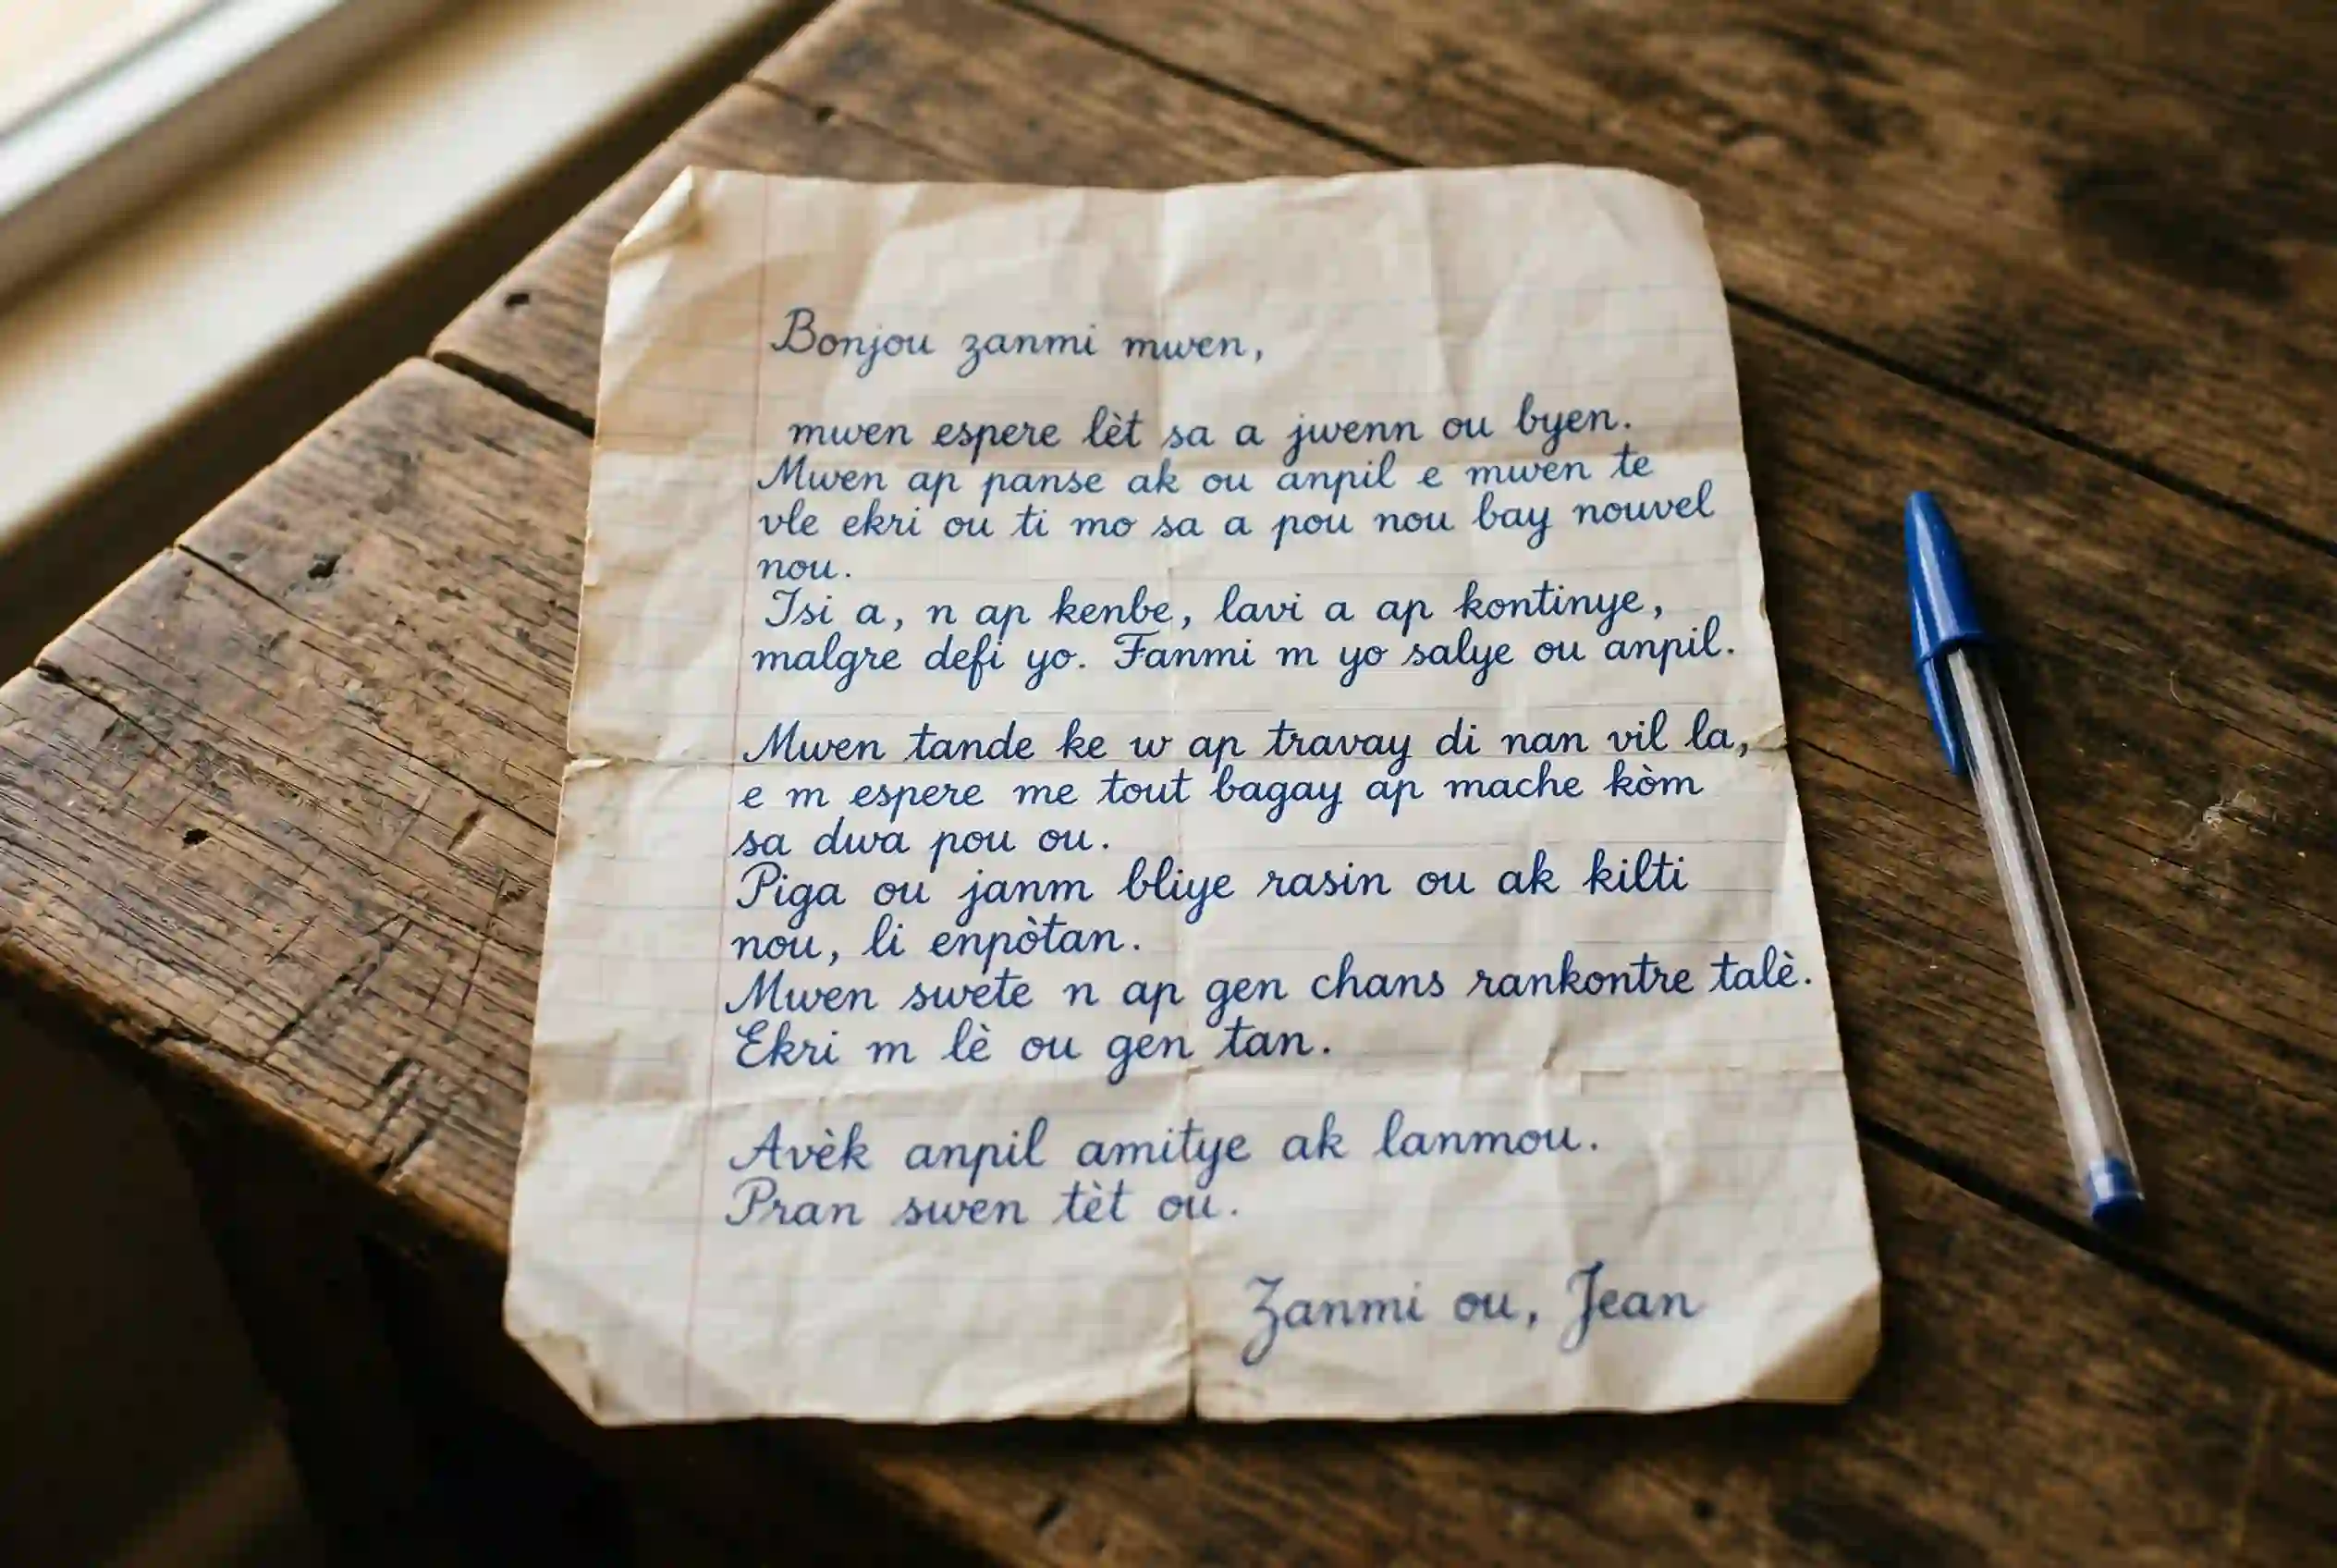 Bonjou zanmi mwen,
mwen espere lèt sa a jwenn ou byen.
Mwen ap panse ak ou anpil e mwen te
vle ekri ou ti mo sa a pou nou bay nouvel
nou.
Isi a, n ap kenbe, lavi a ap kontinye,
malgre defi yo. Fanmi m yo salye ou anpil.
Mwen tande ke w ap travay di nan vil la,
e m espere me tout bagay ap mache kòm
sa dwa pou ou.
Piga ou janm bliye rasin ou ak kilti
nou, li enpòtan.
Mwen swete n ap gen chans rankontre talè.
Ekri m lè ou gen tan.
Avèk anpil amitye ak lanmou.
Pran swen tèt ou.
Zanmi ou, Jean